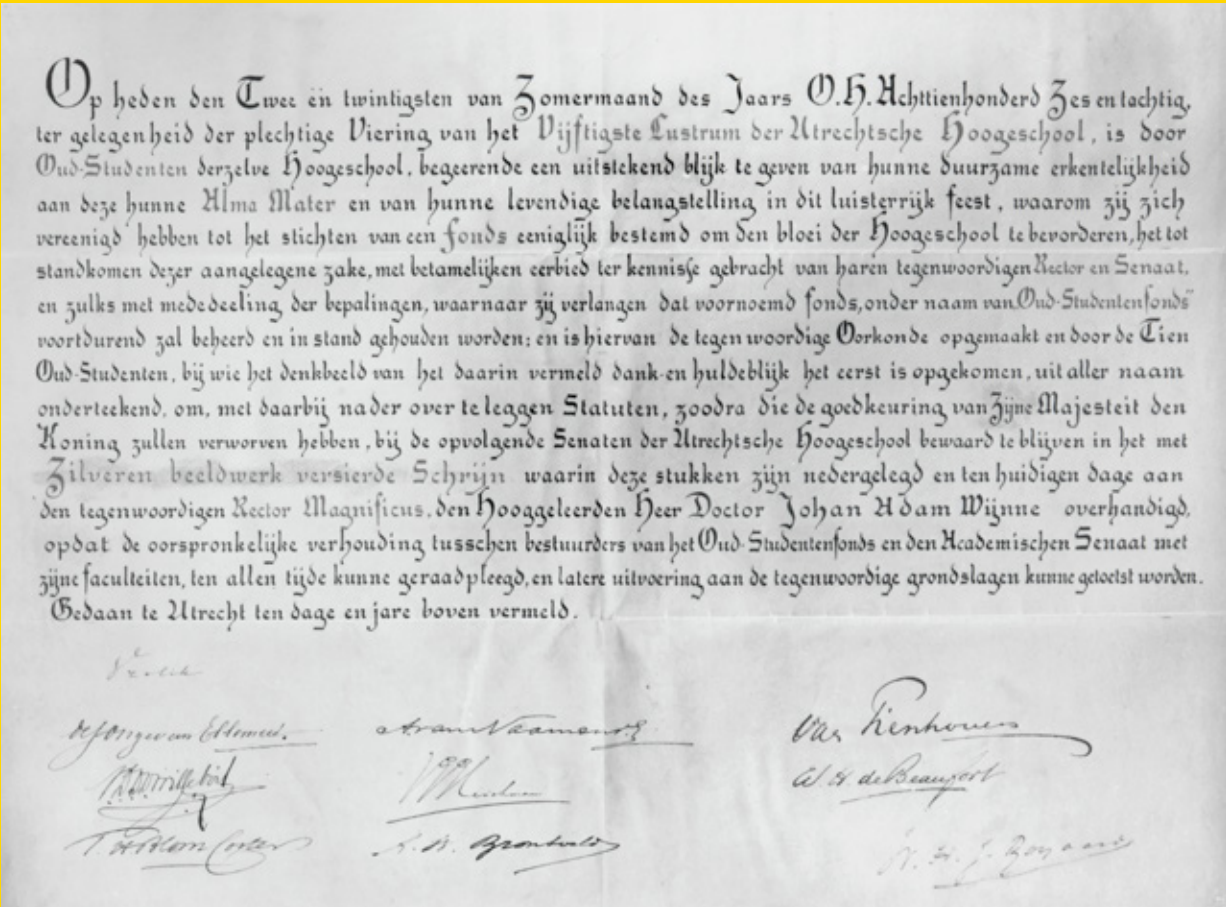 Op heden den Twee en twintigsten van Zomermaand des Jaars O.H. Achttienhonderd Zes en tachtig,
ter gelegenheid der plechtige Viering van het Vijftigste Lustrum der Utrechtsche Hoogeschool, is door
Oud-Studenten derzelve Hoogeschool, begeerende een uitstekend blijk te geven van hunne duurzame erkentelijkheid
aan deze hunne Alma Mater en van hunne levendige belangstelling in dit luisterrijk feest, waarom zij zich
vereenigd hebben tot het stichten van een fonds eeniglijk bestemd om den bloei der Hoogeschool te bevorderen, het tot
standkomen dezer aangelegene zake, met betamelijken eerbied ter kennisse gebracht van haren tegenwoordigen Rector en Senaat,
en zulks met mededeeling der bepalingen, waarnaar zij verlangen dat voornoemd fonds, onder naam van „Oud-Studentenfonds"
voortdurend zal beheerd en in stand gehouden worden; en is hiervan de tegenwoordige Oorkonde opgemaakt en door de Tien
Oud-Studenten, bij wie het denkbeeld van het daarin vermeld dank- en huldeblijk het eerst is opgekomen, uit aller naam
onderteekend, om, met daarbij nader over te leggen Statuten, zoodra die de goedkeuring van Zijne Majesteit den
Koning zullen verworven hebben, bij de opvolgende Senaten der Utrechtsche Hoogeschool bewaard te blijven in het met
Zilveren beeldwerk versierde Schrijn waarin deze stukken zijn nedergelegd en ten huidigen dage aan
den tegenwoordigen Rector Magnificus, den Hooggeleerden Heer Doctor Johan Adam Wijnne overhandigd,
opdat de oorspronkelijke verhouding tusschen bestuurders van het Oud-Studentenfonds en den Academischen Senaat met
zijne faculteiten, ten allen tijde kunne geraadpleegd, en latere uitvoering aan de tegenwoordige grondslagen kunne getoetst worden.
Gedaan te Utrecht ten dage en jare boven vermeld.
de Jonge van Ellemeet.
van Tienhoven
W. H. de Beaufort